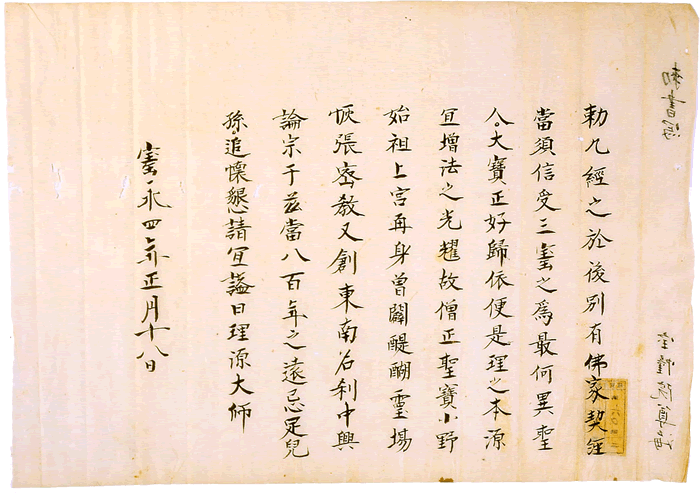 勅書写
勅九経之於後別有佛家契経
當須信受三寳之為最何異聖
人大寳正好歸依便是理之本源
冝增法之光耀故僧正聖寳小野
始祖上宮再身曽闢醍醐靈場
恢張密教又創東南名刹中興
論宗于茲當八百年之遠忌足兒
孫追懷懇請冝謚曰理源大師
寳永四年正月十八日